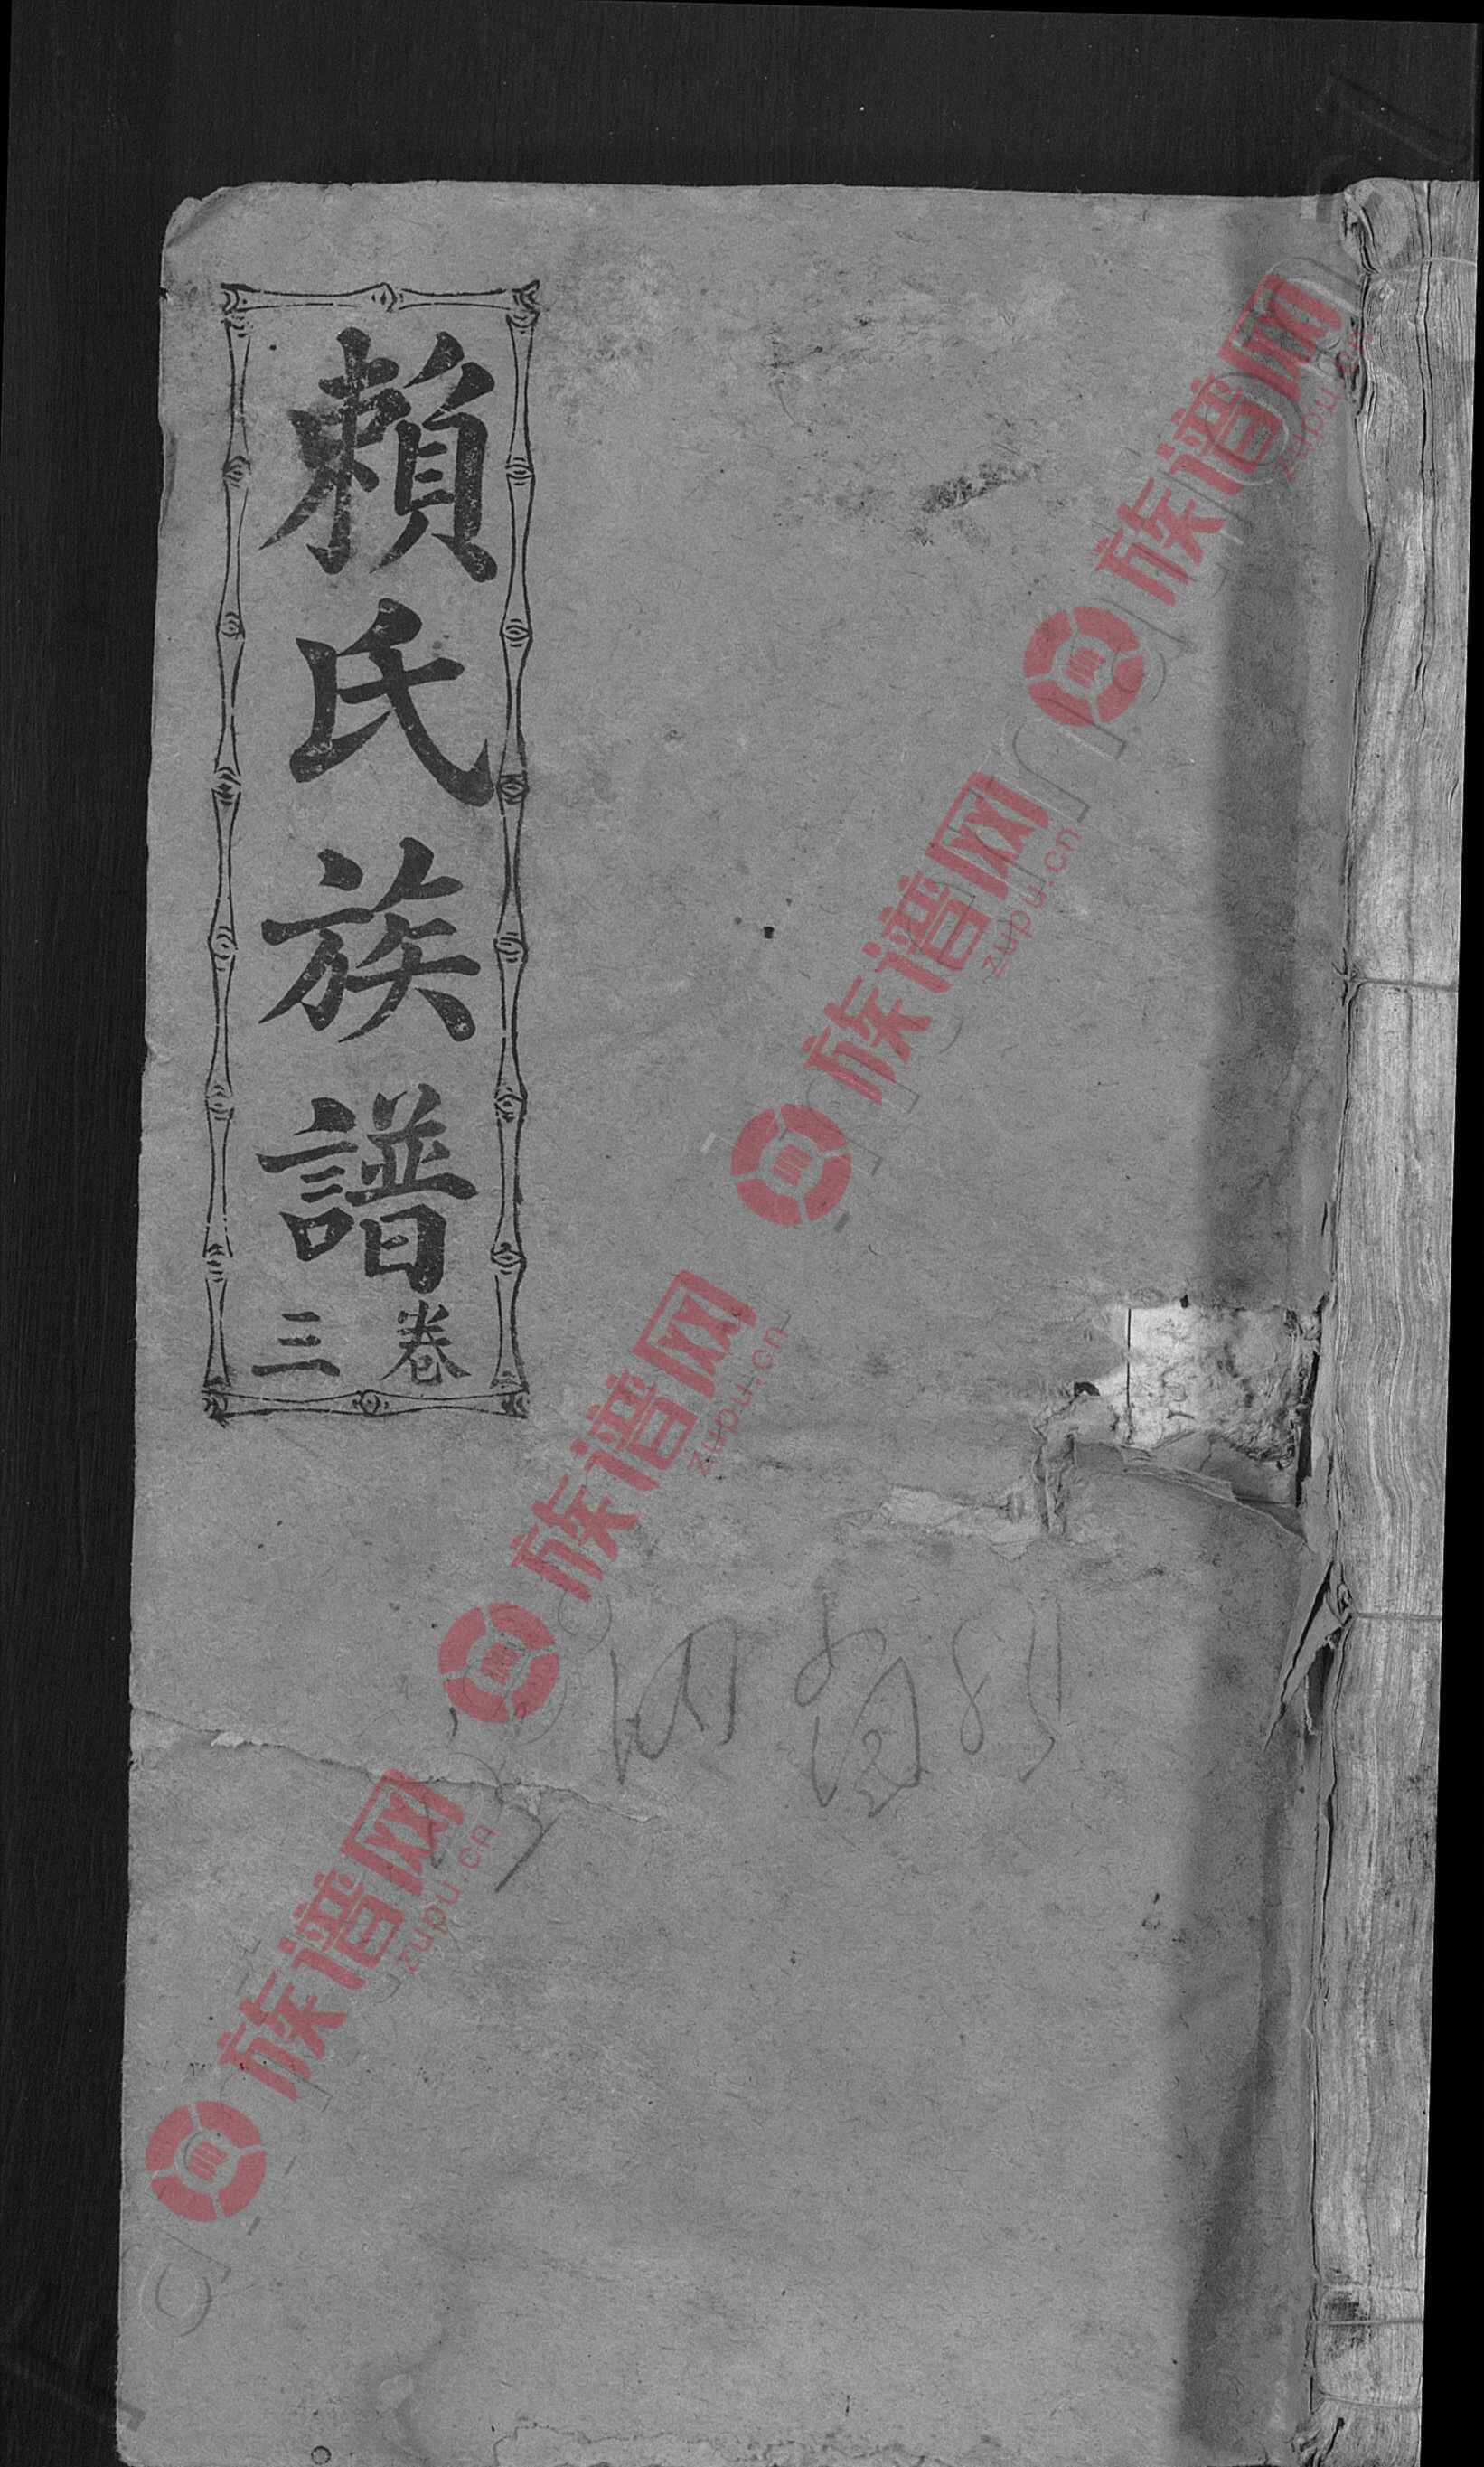 賴氏族譜
卷三
族谱网
zupu.cn
族谱网
zupu.cn
族谱网
zupu.cn
族谱网
zupu.cn